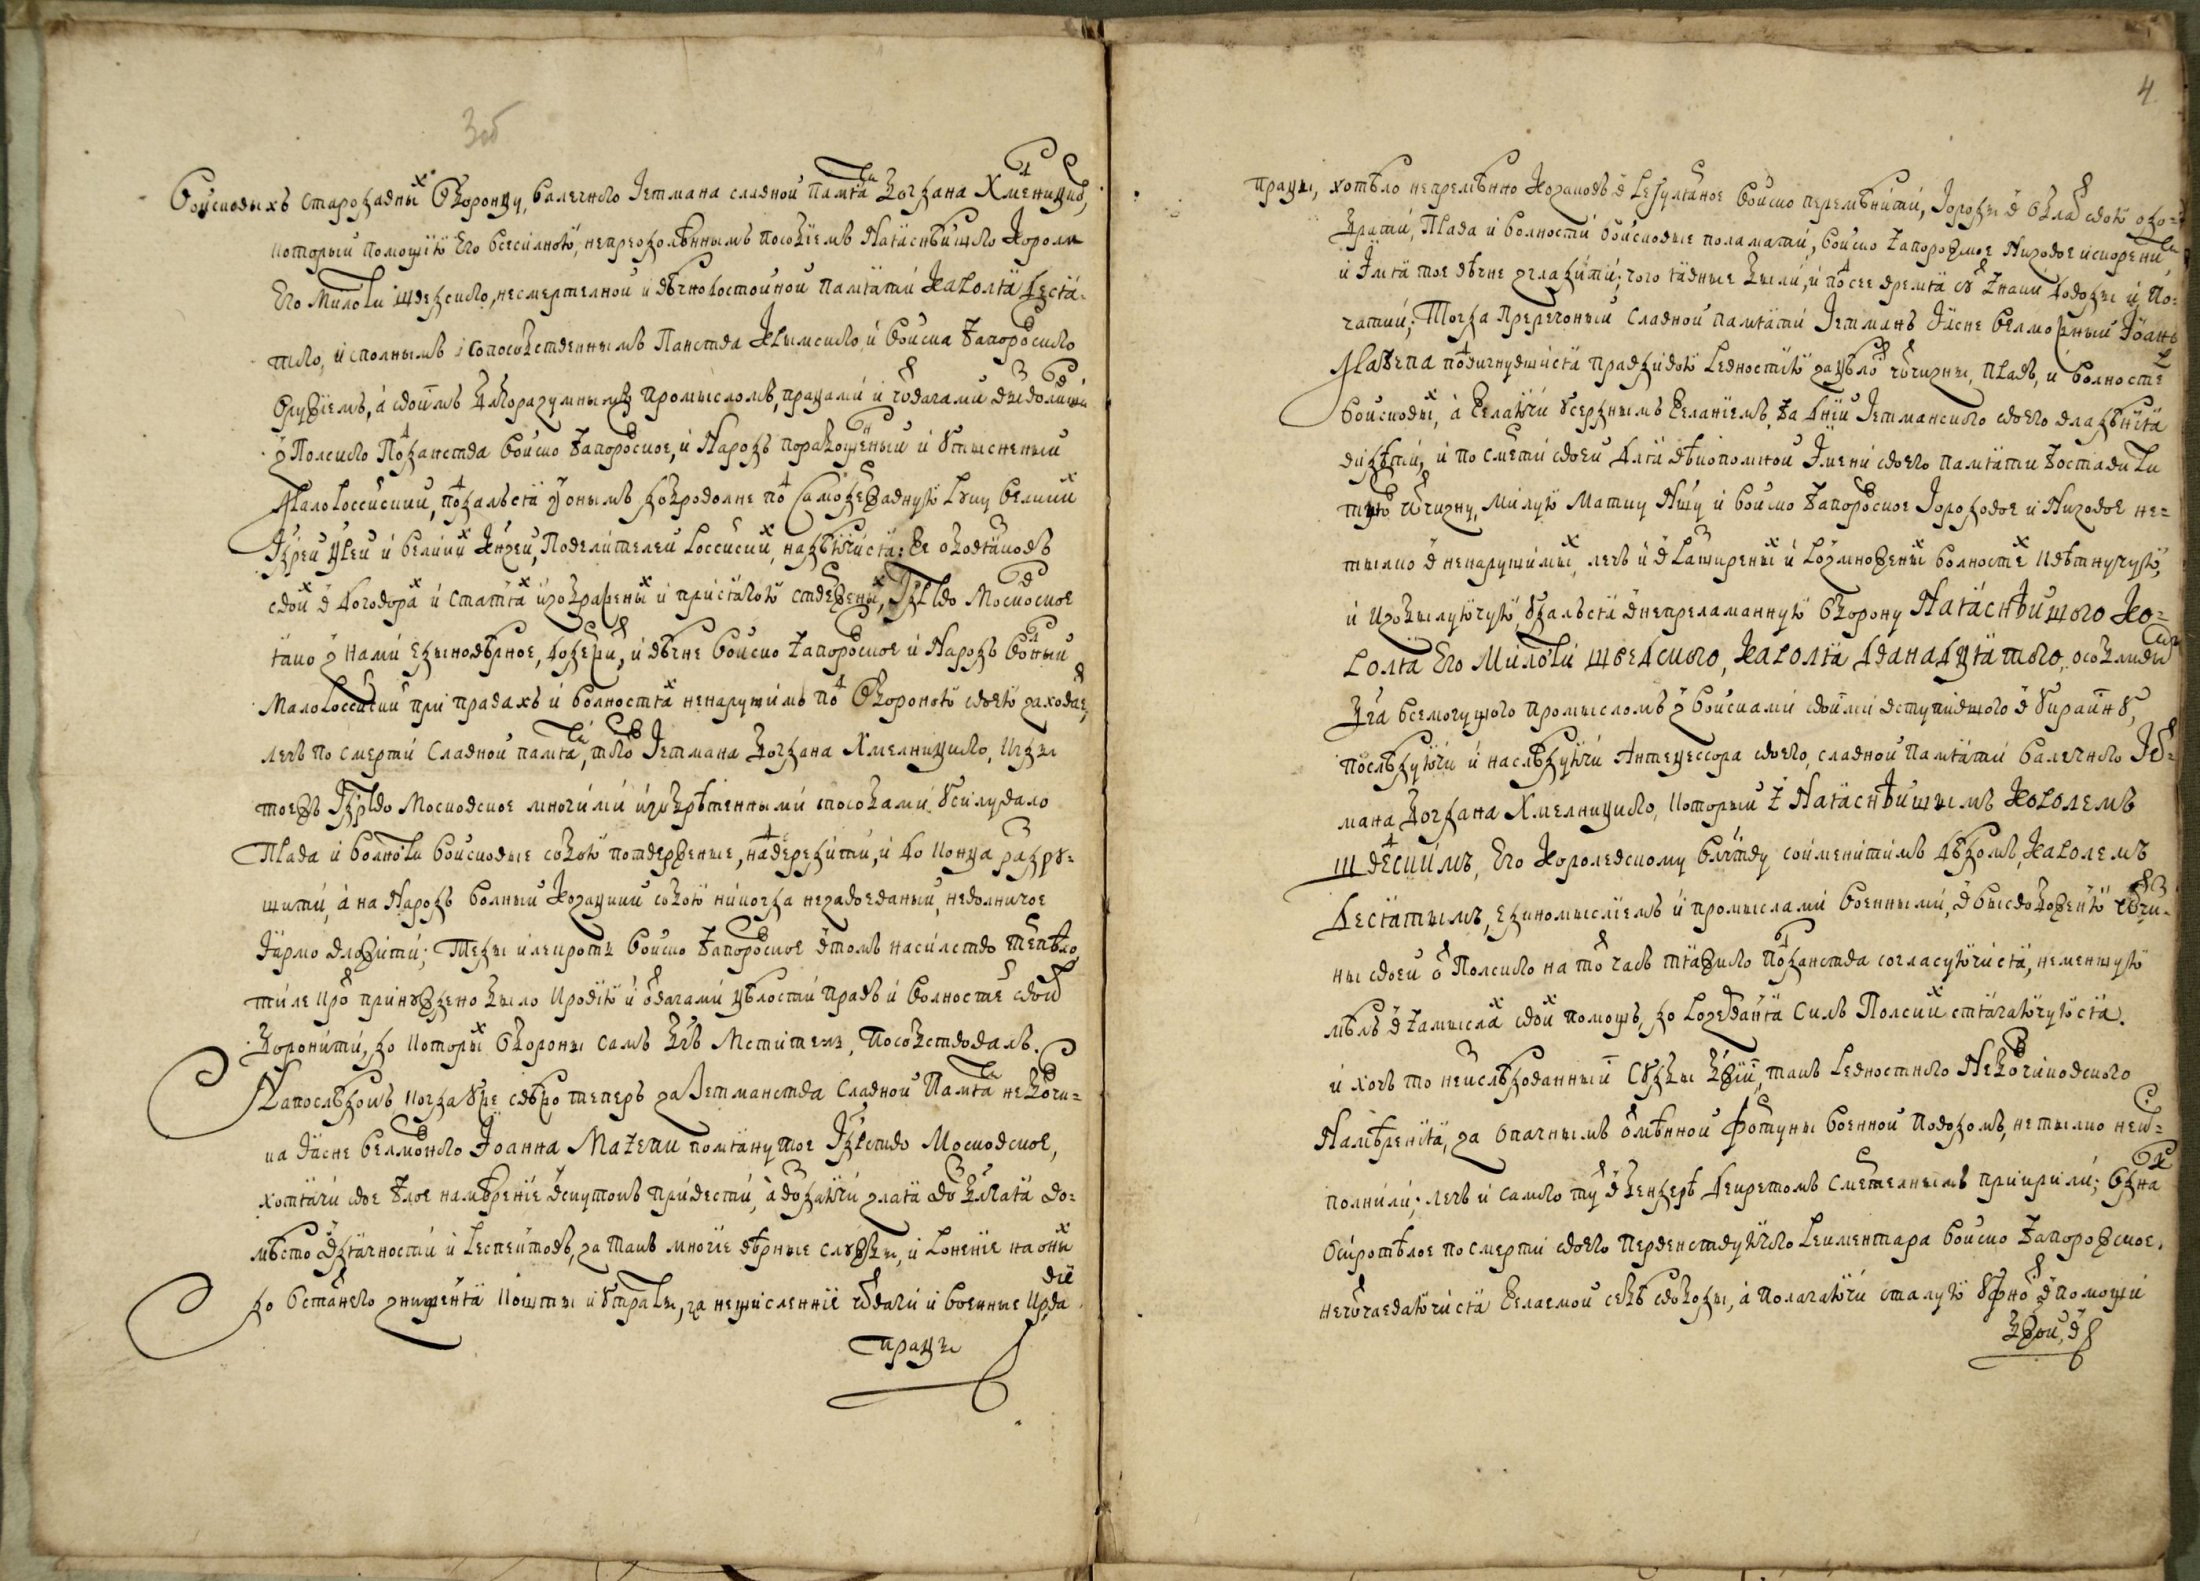 3об
Войсковыхъ стародавных Оборонцу, валечного Гетмана славной памяти Богдана Хмелницкого,
который помощию Его всесилною, непреоборѣннымъ пособиемъ Наяснѣйшого Короля
Его Милости шведского, несмертелной и вѣчнодостойной памяти Каролія Деся-
того, и сполнымъ и сопособственнымъ Панства Крымского, и Войска Запорозского
Оружиемъ, а своимъ благоразумнымъ промысломъ, працами и отвагами выдолил
з Полского Подданства Войско Запорозское, и Народъ поработенный и утисненый
Малороссийский, поддалься з онымъ добродолне под Самодержавную руку великих
Гдрей Црей и великих Кнзей, Повелителей Российских, надѣючися же обовязковъ
своих в договорах и статях изображеных и присягою ствержених, Гдрство Московское
яко з нами Единовѣрное, додержит, и вѣчне Войско Запорозское и Народъ волный
Малороссийский при правахъ и волностях ненарушимъ под Обороною своею заховает,
лечъ по смерти славной памяти, того Гетмана Богдана Хмелницкого, кгды
тоежъ Гдрство Московское многими изобрѣтенными способами усиловало
Права и волности войсковые собою потверженые, надвередити, и до конца разру-
шити, а на Народъ волный Козацкий собою нѣкогда незавоеваный, неволничое
Ярмо вложити; Теды илекротъ Войско Запорозское в томъ насилство терпѣло,
тилекрот принуждено было кровію и отвагами цѣлости правъ и волностей своих
боронити, до которых Обороны самъ Бгъ Мститель, пособствовалъ.
Напослѣдокъ когда уже свѣжо теперъ за Гетманства славной Памяти небожчи-
ка Ясне велможного Иоанна Мазепи помянутое Гдрство Московское,
хотячи свое злое намѣреніе в скутокъ привести, а воздаючи злая воз благая во-
мѣсто вдячности и респектовъ, за такъ многіе вѣрные службы, и роненіе на оные
до останнего знищення кошты и утраты, за незчисленніе отваги и военные крвавіе
працы
4
працы, хотѣло непремѣнно Козаковъ в регулярное войско перемѣнити, Городы в область свою ото-
брати, Права и волности войсковые поламати, Войско Запорозкое Низовое искоренити,
и Имя тое вѣчне згладити; чого явные были, и по сее время суть знаки доводы и По-
чатки; Тогда преречоный славной памяти Гетманъ Ясне велможный Иоанъ
Мазепа подвигнувшися правдивою ревностию за цѣлость отчизны, Правъ, и волностей
войсковых, а желаючи усерднымъ желаніемъ за дній Гетманского своего владѣнія
видѣти, и по смерти своей для вѣкопомной Имени своего памяти зоставити
тую отчизну, милую Матку Ншу и Войско Запорозское Городовое и Низовое не-
тылко в ненарушимых, лечъ и в разширеных и розмноженых волностех квѣтнучую,
и изобылуючую, удалься в непреламанную оборону Наяснѣйшого Ко-
роля Его Милости шведского, Кароля дванадцятого, особливым
Бга всемогущого промысломъ з войсками своими вступившого в Украину,
послѣдуючи и наслѣдуючи Антецессора своего, славной памяти валечного Гет-
мана Богдана Хмелницкого, который з Наяснѣйшымъ Королемъ
шведскимъ, Его Королевскому величеству соименитымъ дѣдомъ, Каролемъ
Десятымъ, единомысліемъ и промыслами военными, в высвобоженю отчиз-
ны своей от Полского на тот часъ тяжкого Подданства согласуючися, неменшую
мѣлъ в замыслах своих помощъ, до розерванія силъ Полских стягаючуюся.
И хочъ то неизслѣдованныи Судбы Бжіи, такъ ревностного небожчиковского
Намѣренія, за опачнымъ отмѣнной Фортуны военной поводомъ, не тылко неис-
полнили; лечъ и самого ту в Бендерѣ декретомъ смертелнымъ прикрили; Однак
осиротѣлое по смерти своего первенствуючого Рейментара Войско Запорожское,
неотчаеваючися желаемой себѣ свободы, а полагаючи сталую уфность в помощи
Бжой, в